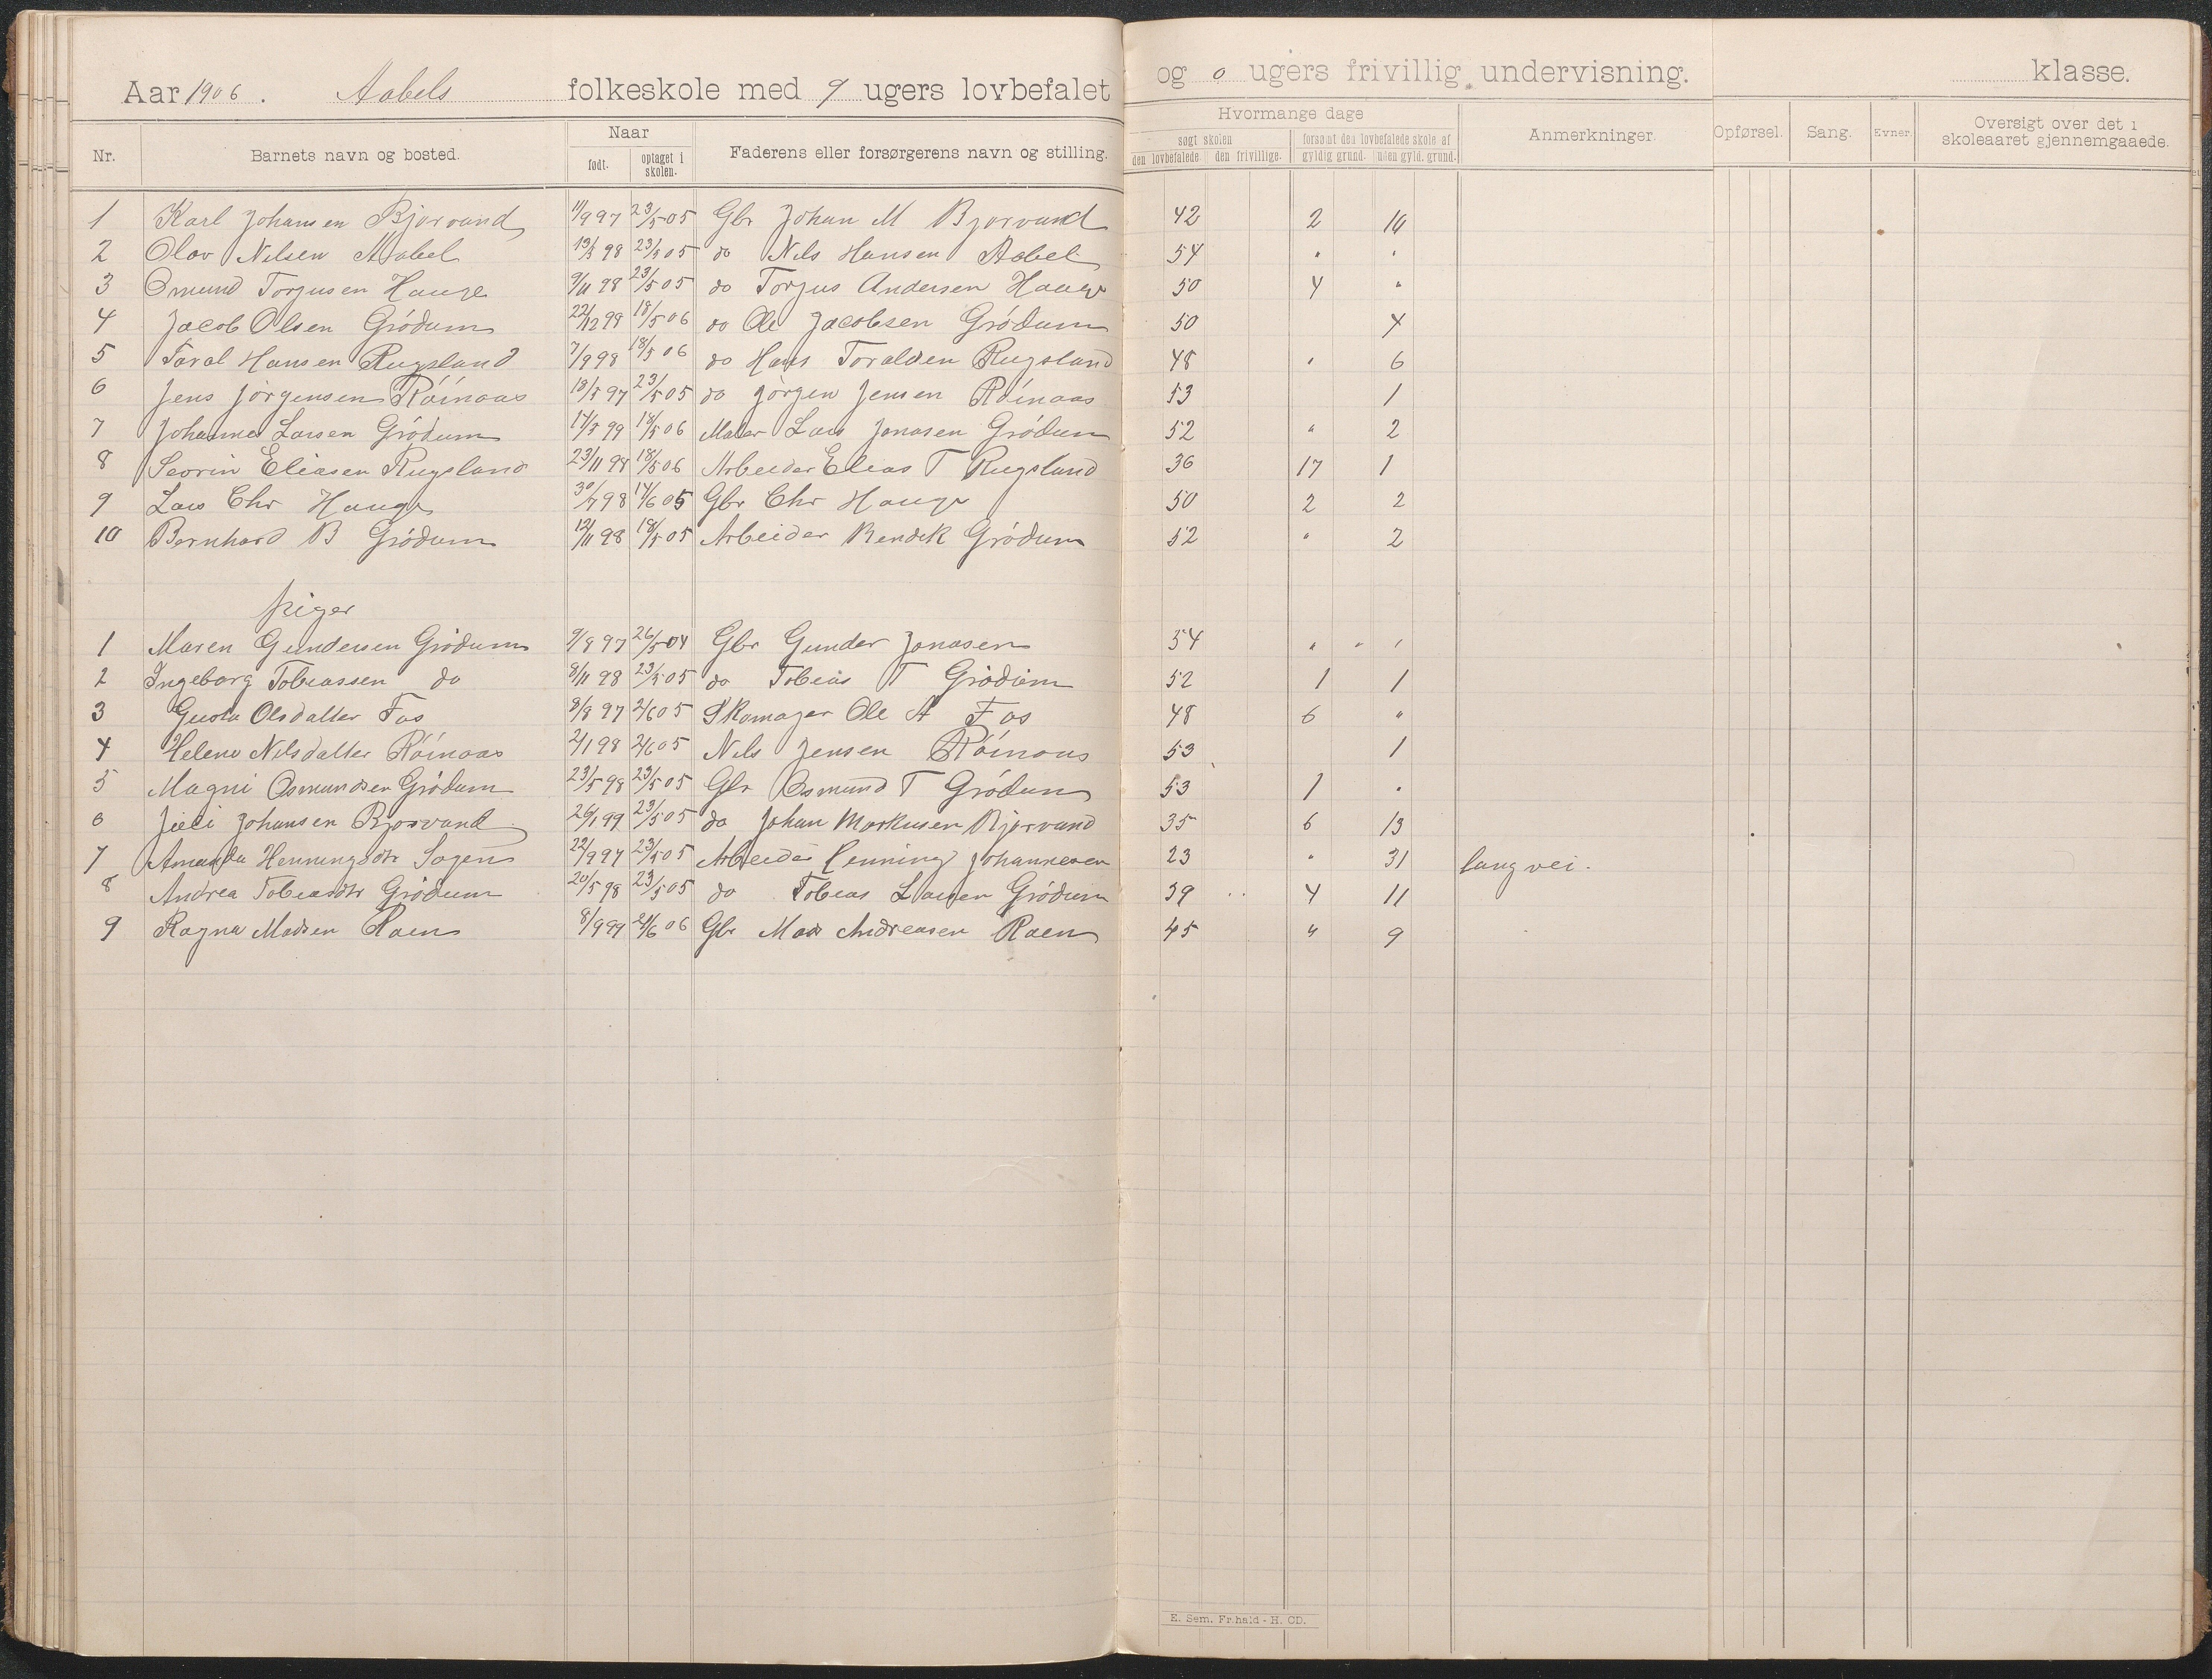 Aar 1906. Aabels folkeskole med 9 ugers lovbefalet og 0 ugers frivillig undervisning. klasse.
Nr. Barnets navn og bosted. Naar født. optaget i skolen. Faderens eller forsørgerens navn og stilling. Hvormange dage søgt skolen den lovbefalede. den frivillige. forsømt den lovbefalede skole af gyldig grund. uden gyld. grund. Anmerkninger. Opførsel. Sang. Evner. Oversigt over det i skoleaaret gjennemgaaede.
1 Karl Johansen Bjorvand 11/9 97 23/5 05 Gbr Johan M Bjorvand 42 2 10
2 Olav Nilsen Aabel 13/5 98 23/5 05 do Nils Hansen Aabel 54 " "
3 Osmund Torjusen Hauge 9/11 98 23/5 05 do Torjus Andersen Hauge 50 4 "
4 Jacob Olsen Grødum 22/12 98 18/5 06 do Ole Jacobsen Grødum 50 4
5 Taral Hansen Rugsland 7/9 98 18/5 06 do Hans Toralden Rugsland 48 " 6
6 Jens Jørgensen Røinaas 18/5 97 23/5 05 do Jørgen Jensen Røinaas 53 1
7 Johannes Larsen Grødum 14/5 99 18/5 06 Maler Lars Jonasen Grødum 52 " 2
8 Severin Eliasen Rugsland 23/11 98 18/5 06 Arbeider Elias T Rugsland 36 17 1
9 Lars Chr Hauge 30/7 98 14/6 05 Gbr Chr Hauge 50 2 2
10 Bernhard B Grødum 12/11 98 18/5 05 Arbeider Bendik Grødum 52 " 2
piger
1 Maren Gundersen Grødum 9/8 97 26/5 04 Gbr Gunder Jonasen 54 " " "
2 Ingeborg Tobiassen do 8/11 98 23/5 05 do Tobias T Grødum 52 1 1
3 Gusta Olsdatter Fos 8/8 97 2/6 05 Skomager Ole A Fos 48 6 "
4 Helene Nilsdatter Røinaas 2/1 98 2/6 05 Nils Jensen Røinaas 53 1
5 Magni Osmundsen Grødum 23/5 98 23/5 05 Gbr Osmund T Grødum 53 1 "
6 Johansen Bjorvand 26/1 99 23/5 05 do Johan Markusen Bjorvand 35 6 13
7 Amanda Henningsdtr Sagen 22/9 97 23/5 05 Arbeider Henning Johannesen 23 " 31 lang vei.
8 Andrea Tobiasdtr Grødum 20/5 98 23/5 05 do Tobias Larsen Grødum 39 4 11
9 Ragna Madsen Raen 8/9 99 21/6 06 Gbr Mads Andreasen Raen 45 " 9
E. Sem. Fr.hald - H. CD.